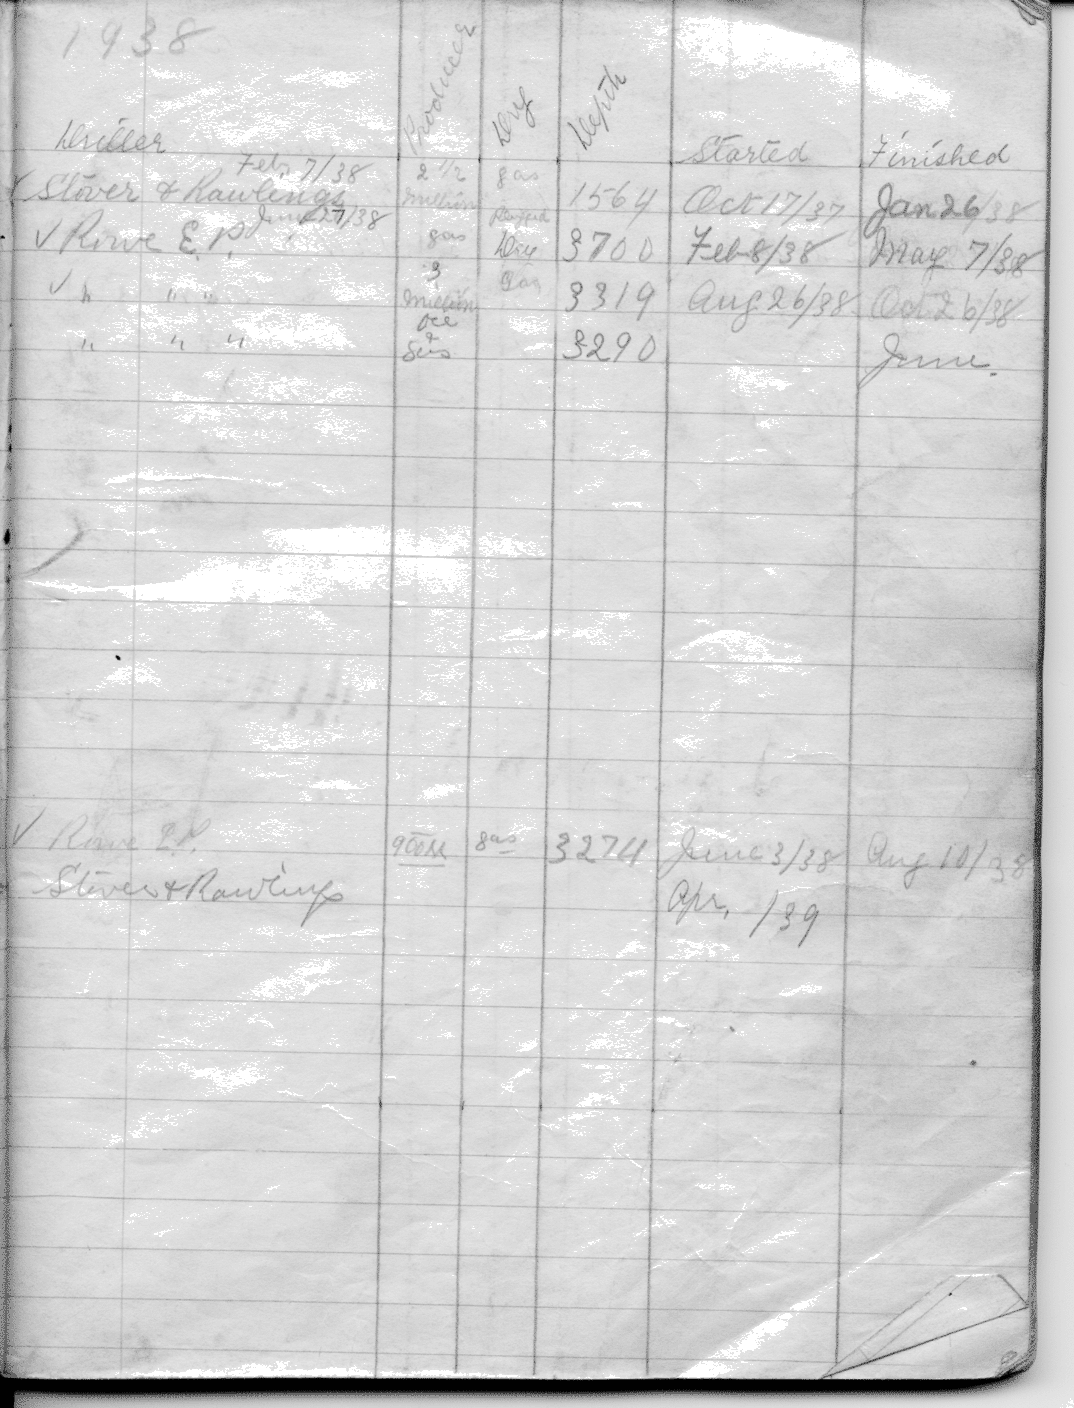 1938
Driller Producer Dry Depth Started Finished
Feb. 7/38 2 1/2 gas
✓ Stover & Rawlings million 1564 Oct 17/37 Jan 26/38
June 27/38
✓ Rowe E.P. gas Dry 3700 Feb 8/38 May 7/38
3 Gas
✓ " " " million 3319 Aug 26/38 Oct 26/38
Oil
" " " & Gas 3290 June.
✓ Rowe E.P. gas 3274 June 3/38 Aug 10/38
Stover & Rawlings Apr. /39